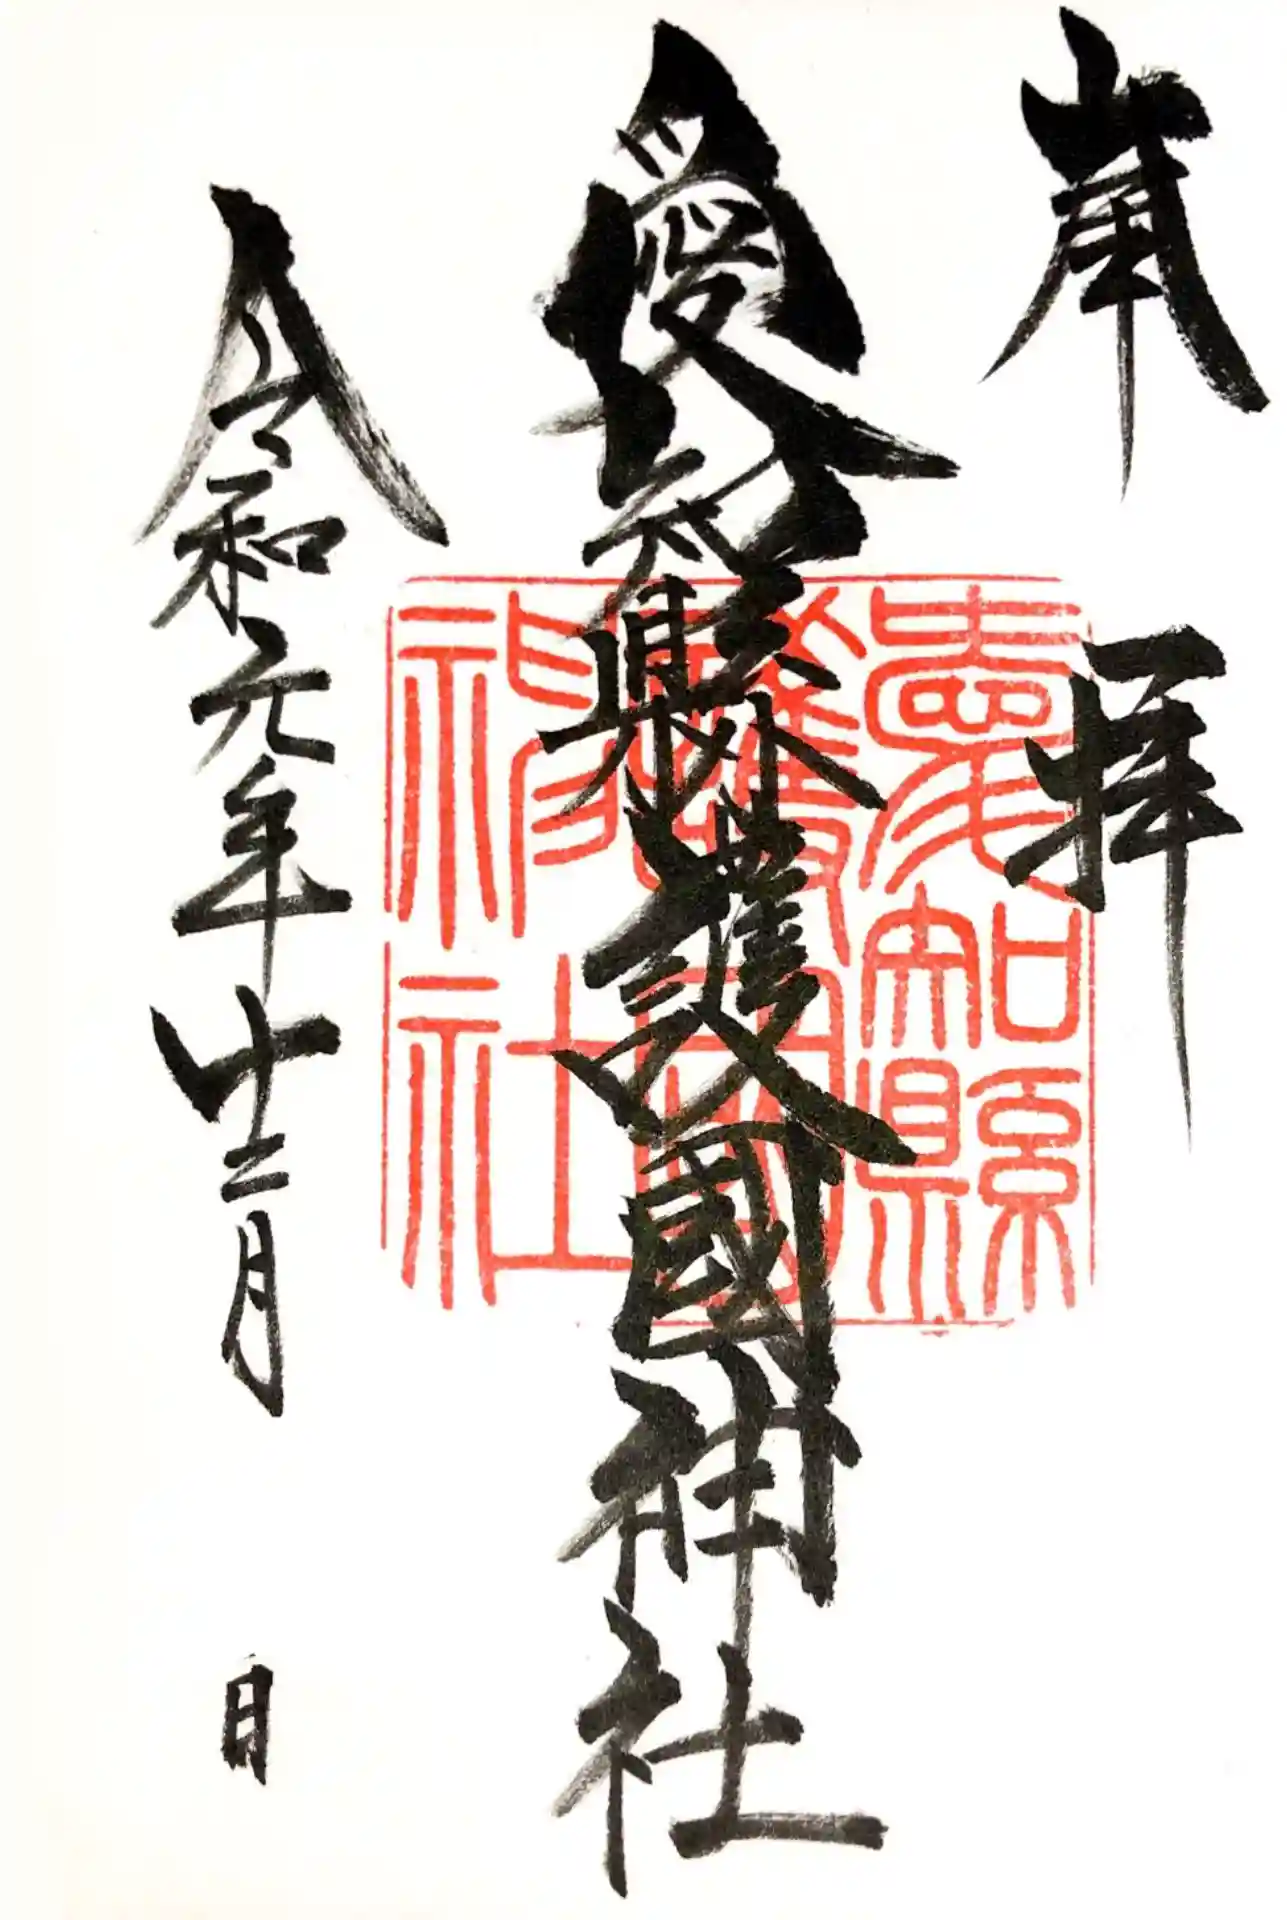 奉拝
愛知縣護國神社
愛知縣
護国
神社
令和元年十二月 日